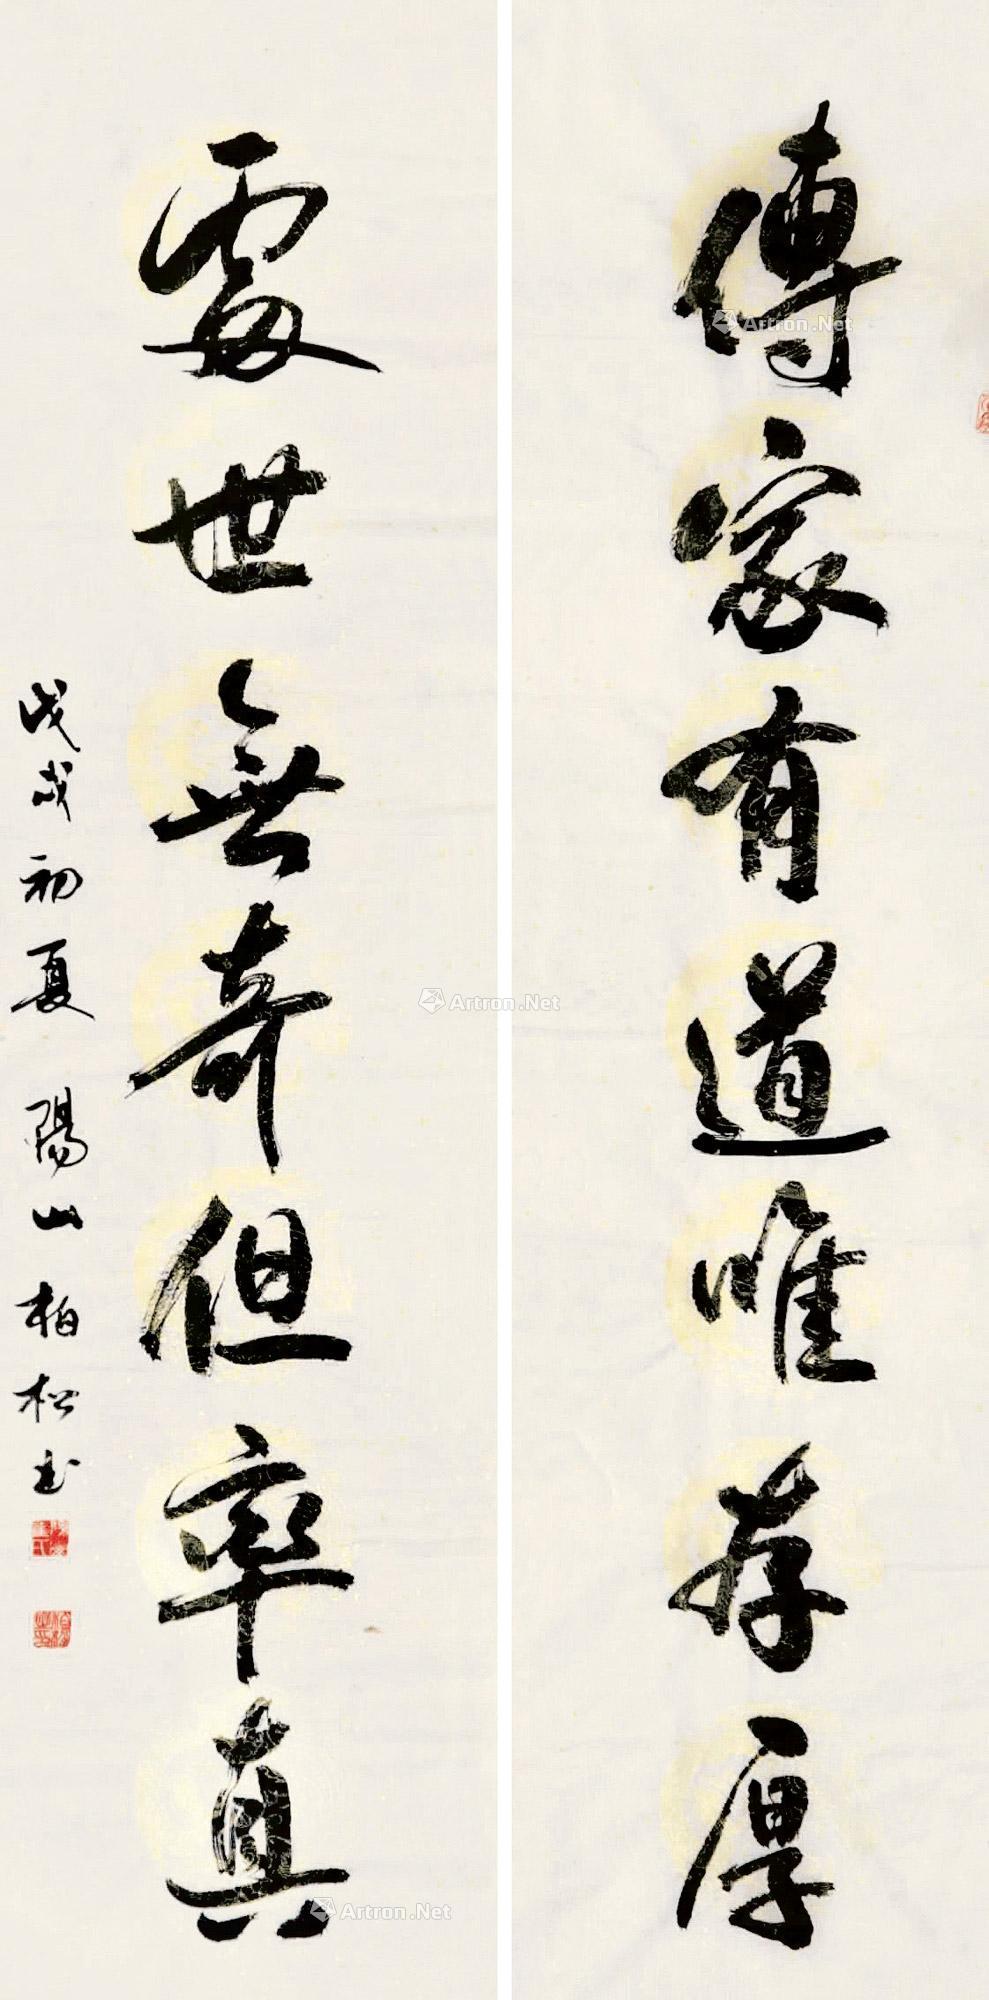 傳家有道唯存厚
處世無奇但率真
戊戌初夏 陽山柏松書
Artron.Net
Artron.Net
Artron.Net